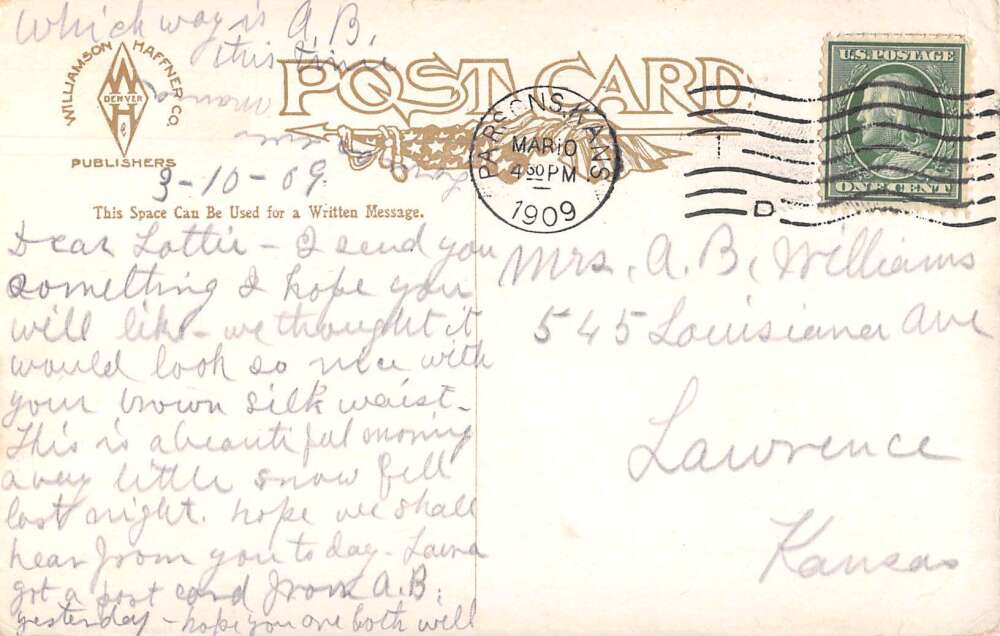 Which way is A.B,
this time
WILLIAMSON HAFFNER CO.
DENVER
PUBLISHERS
POST CARD
PARSONS, KANS
MAR 10
4 30 PM
1909
1
D
U.S. POSTAGE
ONE CENT
3-10-09
This Space Can Be Used for a Written Message.
Dear Lottie - I send you
something I hope you
will like - we thought it
would look so nice with
your brown silk waist -
This is a beautiful morning
a very little snow fell
last night. hope we shall
hear from you to day - Laura
got a post card from A.B.
yesterday - hope you are both well
Mrs, A. B, Williams
545 Louisiana Ave
Lawrence
Kansas